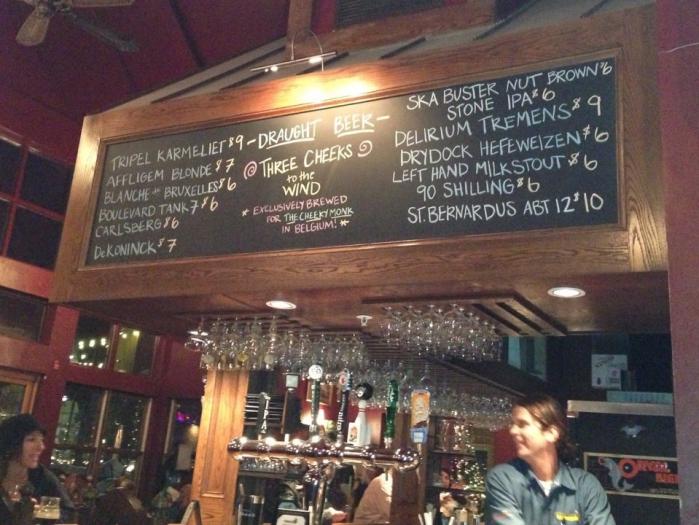 TRIPEL KARMELIET $9
AFFLIGEM BLONDE $7
BLANCHE de BRUXELLES $6
BOULEVARD TANK 7 $6
CARLSBERG $6
DeKONINCK $7
-DRAUGHT BEER-
THREE CHEEKS
to the
WIND
* EXCLUSIVELY BREWED
FOR THE CHEEKY MONK
IN BELGIUM! *
SKA BUSTER NUT BROWN $6
STONE IPA $6
DELIRIUM TREMENS $9
DRYDOCK HEFEWEIZEN $6
LEFT HAND MILKSTOUT $6
90 SHILLING $6
ST. BERNARDUS ABT 12 $10